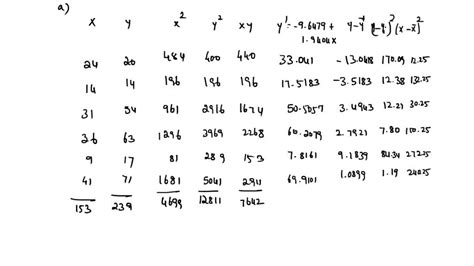 a)
x y x² y² xy y¹ = -9.6479 + 1.9404x y-y¹ (y-y¹)² (x-x̄)²
24 20 484 400 440 33.041 -13.0418 170.09 12.25
14 14 196 196 196 17.5183 -3.5183 12.38 132.25
31 54 961 2916 1674 50.5057 3.4943 12.21 30.25
36 63 1296 3969 2268 60.2079 2.7921 7.80 100.25
9 17 81 289 153 7.8161 9.1839 84.34 272.25
41 71 1681 5041 2911 69.9101 1.0899 1.19 240.25
153 239 4699 12811 7642